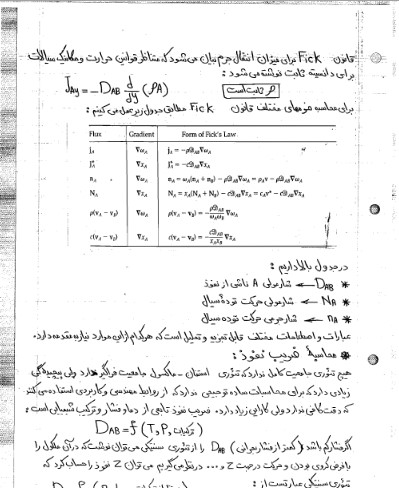 قانون Fick برای میزان انتقال جرم بیان می‌شود که متناظر قوانین حرارت و مکانیک سیالات
برای دانسیته ثابت نوشته می‌شود :
J_Ay = -D_AB d/dy (ρA)
ثابت است
برای محاسبه فرمهای مختلف قانون Fick مطابق جدول زیر عمل می‌کنیم :
Flux Gradient Form of Fick's Law
j_A ∇ω_A j_A = -ρ𝒟_AB∇ω_A
J*_A ∇x_A J*_A = -c𝒟_AB∇x_A
n_A ∇ω_A n_A = ω_A(n_A + n_B) - ρ𝒟_AB∇ω_A = ρ_Av - ρ𝒟_AB∇ω_A
N_A ∇x_A N_A = x_A(N_A + N_B) - c𝒟_AB∇x_A = c_Av* - c𝒟_AB∇x_A
ρ(v_A - v_B) ∇ω_A ρ(v_A - v_B) = -ρ𝒟_AB/ω_Aω_B ∇ω_A
c(v_A - v_B) ∇x_A c(v_A - v_B) = -c𝒟_AB/x_Ax_B ∇x_A
در جدول بالا داریم :
* D_AB ← شار مولی A ناشی از نفوذ
* N_A ← شار مولی حرکت توده سیال
* n_A ← شار جرمی حرکت توده سیال
عبارات و اصطلاحات مختلف قابل تجزیه و تحلیل است که هرکدام از این موارد نیاز به مقدمه دارد.
* محاسبه ضریب نفوذ :
هیچ تئوری جامعیت کامل ندارد که تئوری استفان - ماکسول جامعیت فراگیر دارد ولی پیچیدگی
زیادی دارد که برای محاسبات ساده توجیهی ندارد که از روابط مهندسی و کاربردی استفاده می‌کنند
که دقت کافی ندارد ولی کارایی زیاد دارد. ضریب نفوذ تابعی از دما و فشار و ترکیب شیمیایی است :
D_AB = f (T, P, ترکیبات)
اگر فشار کم باشد (کمتر از فشار بحرانی) D_AB را از تئوری سنتیکی می‌توان نوشت که در آن مولکول را
با فرض کروی بودن و حرکت در جهت Z و ... در نظر می‌گیریم می‌توان Z نفوذ را حساب کرد که
تئوری سنتیکی عبارتست از :